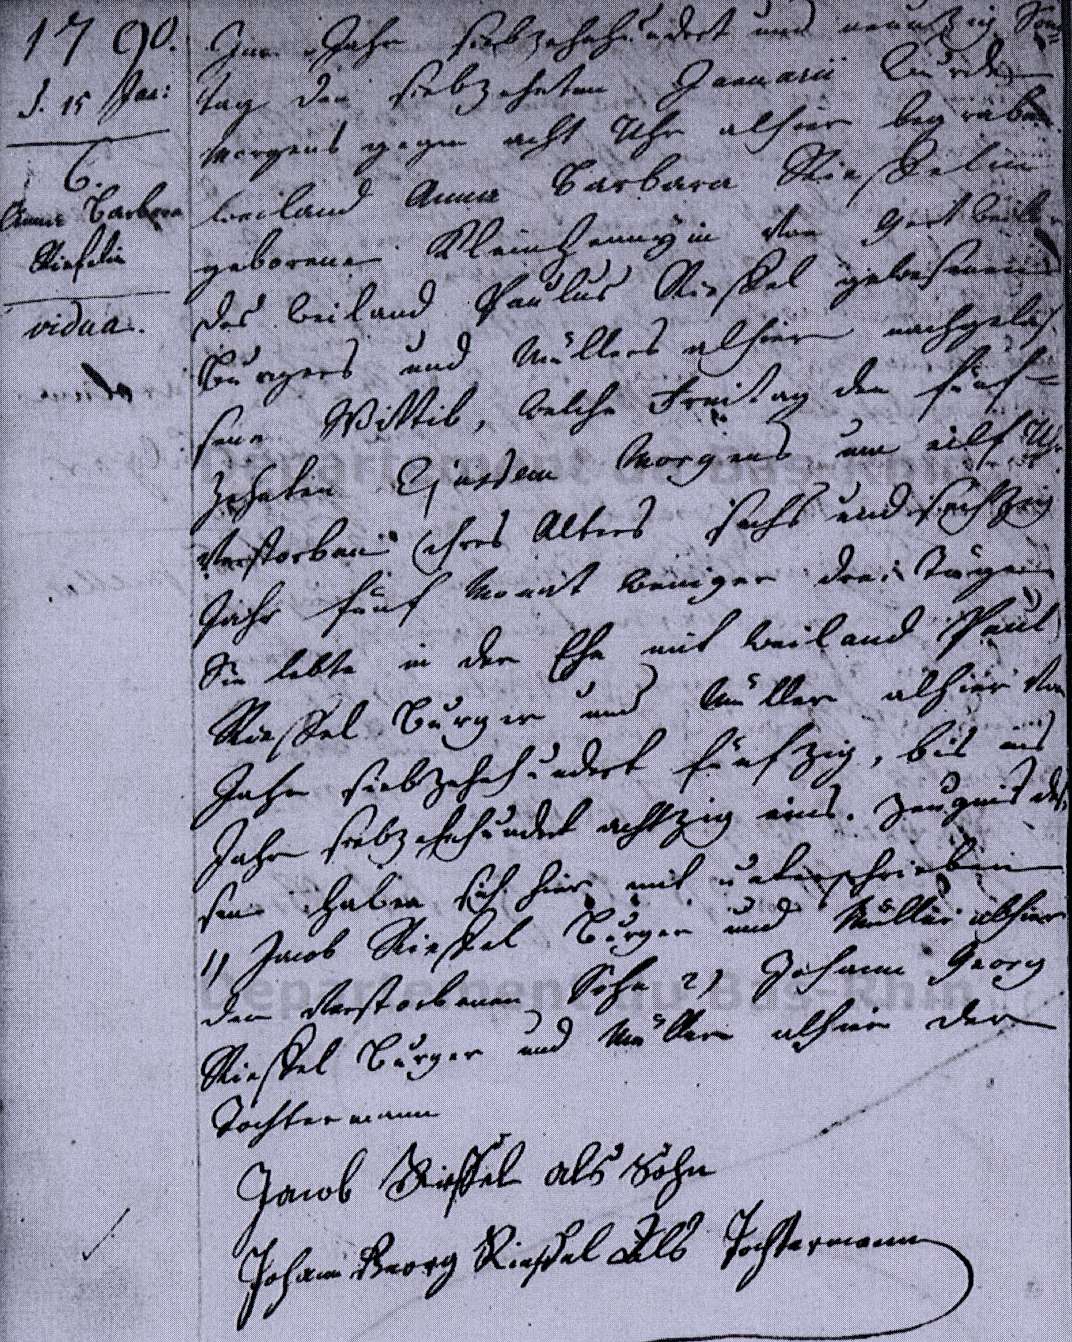 1790.
d. 15 Jan:
6.
Anna Barbara
Rießelin
vidua.
Im Jahr siebzehnhundert und neunzig Son¬
tag den siebzehnten Januarii wurde
morgens gegen acht Uhr alhier begraben
weiland Anna Barbara Rießelin
geborene von
des weiland Paulus Rießel gewesenen
Burgers und Müllers alhier nachgelaß
sene Wittib, welche Freitag den fünf¬
zehnten Morgens um eilf Uhr
verstorben ihres Alters sechs und sechzig
Jahr fünf Monat weniger drei Tage
Sie lebte in der Ehe mit weiland Paul
Rießel Burger und Müller alhier vom
Jahr siebzehnhundert fünfzig, bis ins
Jahr siebzehnhundert achtzig eins. Zeugnis des¬
sen haben sich hier mit unterschrieben
1) Jacob Rießel Burger und Müller alhier
der verstorbenen Sohn 2) Johann Georg
Rießel Burger und Müller alhier der
Tochtermann
Jacob Rießel als Sohn
Johann Georg Rießel Als Tochtermann
Departement du Bas-Rhin
Departement du Bas-Rhin